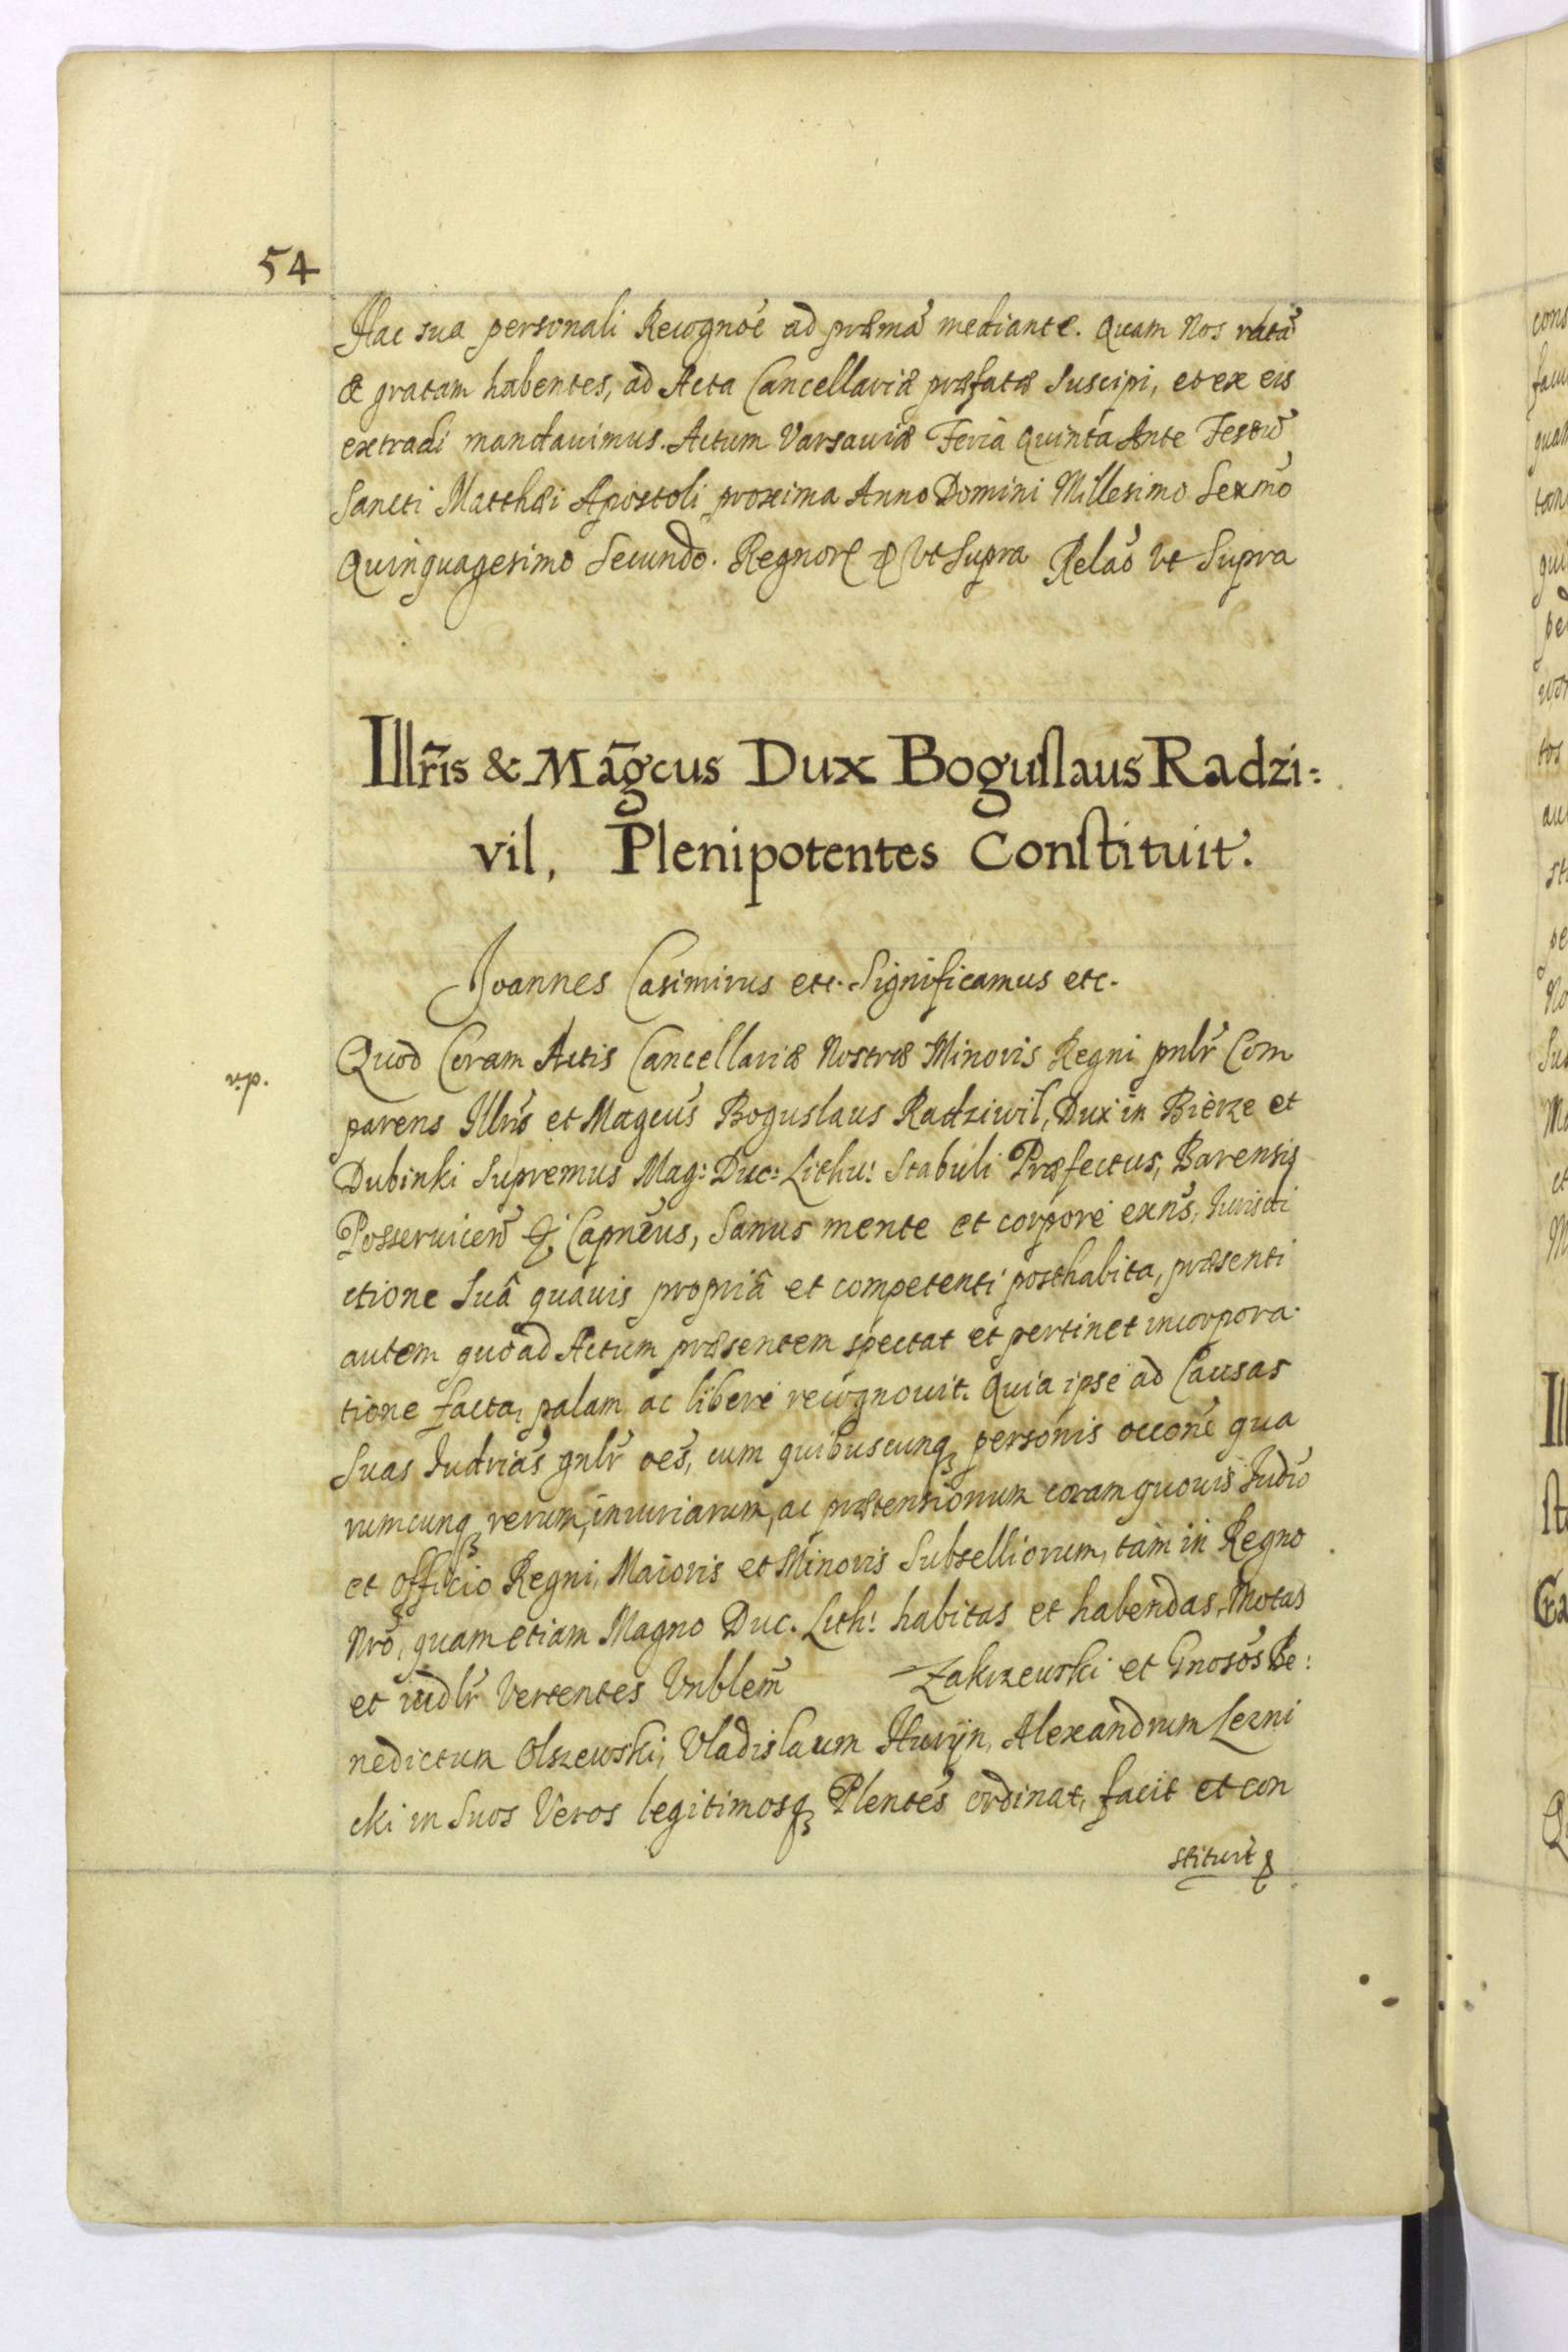 54
Hac sua personali Recognoẽ ad prӕmã mediante. Quam Nos ratã
& gratam habentes, ad Acta Cancellariæ præfatæ Suscipi, et ex eis
extradi mandauimus. Actum Varsauiæ Feria Quinta Ante Festũ
Sancti Matthæi Apostoli proxima Anno Domini Millesimo Sexmõ
Quinquagesimo Secundo. Regnorꝝ & Vt Supra Relaõ Vt Supra
Illr̃is & Mãgcus Dux Boguslaus Radzi:
vil, Plenipotentes Constituit.
Joannes Casimirus etc. Significamus etc.
Quod Coram Actis Cancellariæ Nostræ Minoris Regni pnlr̃ Com
parens Illrĩs et Magcũs Boguslaus Radziwil, Dux in Bierze et
Dubinki Supremus Mag: Duc: Lithu: Stabuli Præfectus, Barensis
Posseruicen̄ &c Capnẽus, Sanus mente et corpore exñs, Iurisdi
ctione Suâ quauis propriâ et competenti posthabita, præsenti
autem quoad Actum præsentem spectat et pertinet incorpora
tione facta, palam ac libere recognouit. Quia ipse ad Causas
Suas Iudriãs gnlr̃ oẽs, cum quibuscunqꝫ personis occonẽ qua
rumcunqꝫ rerum, iniuriarum, ac prætensionum coram quouis Iudiõ
et officio Regni, Maioris et Minoris Subselliorum, tam in Regno
Nrõ, quam etiam Magno Duc. Lith: habitas et habendas, Motas
et iudlr̃ Vertentes Vnblem̃ Zakrzewski et Gnosõs Be:
nedictum Olszewski, Vladislaum Huryn, Alexandrum Lezni
cki in Suos Veros legitimosqꝫ Plentẽs ordinat, facit et con
stituit &